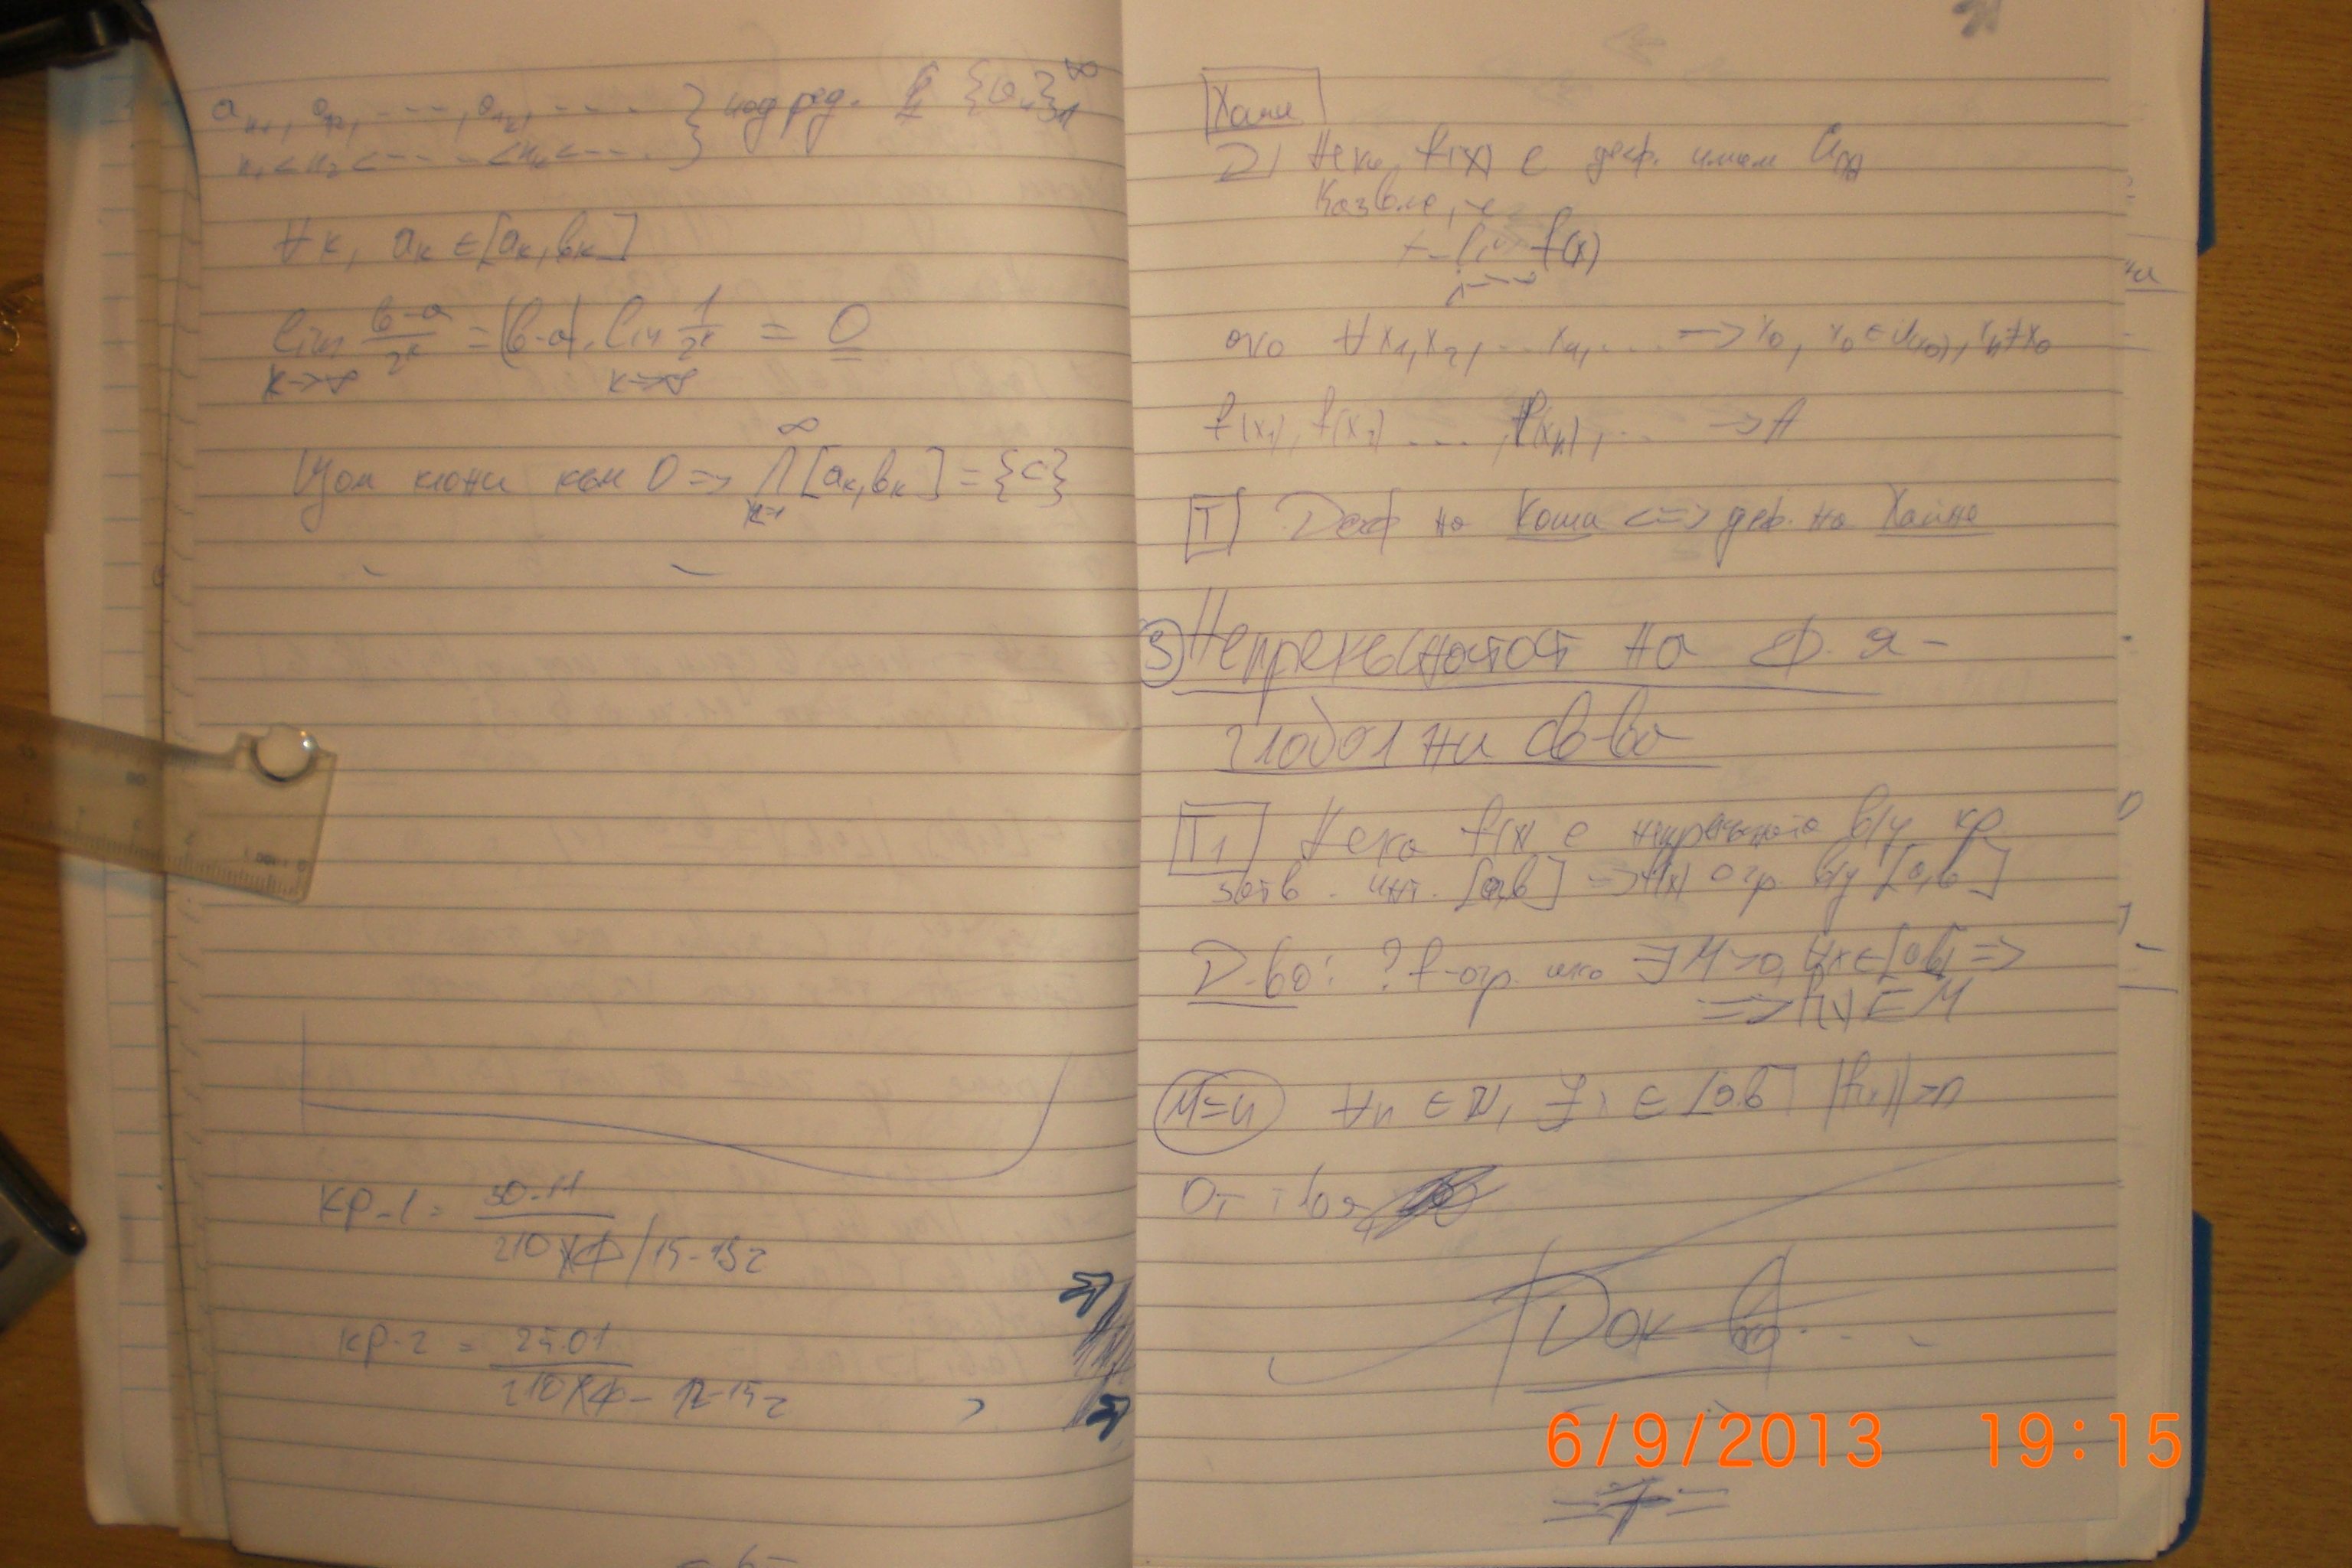 a_{n1}, a_{n2}, ..., a_{nk}, ... } подред. {a_n}_1^∞
n_1 < n_2 < ... < n_k < ...
∀k, a_k ∈ [a_k, b_k]
lim_{k→∞} (b-a)/2^k = (b-a). lim_{k→∞} 1/2^k = 0
клони към 0 => ∩_{k=1}^∞ [a_k, b_k] = {c}
кр-1 = 30.11
210 ХФ / 15-19 г
кр-2 = 25.01
210 ХФ - 12-15 г
Хайне
D/ Нека f(x) е деф. U(x_0)
Казваме, че
lim f(x)
ако ∀ x_1, x_2, ... x_n, ... → x_0, x_0 ∈ U(x_0), x_n ≠ x_0
f(x_1), f(x_2) ..., f(x_n), ... → A
T Деф на Коши <=> деф. на Хайне
3 Непрекъснатост на ф. я -
глобални св-ва
T1 Нека f(x) е непрекъсната в/у кр.
затв. инт. [a,b] => f(x) огр. в/у [a,b]
D-во: ? f-огр. ако ∃ M>0, ∀x∈[a,b] =>
=> f(x) ≤ M
M=n ∀n ∈ N, ∃ ∈ [a,b] |f(x)|>n
От
Док-во...
6/9/2013 19:15